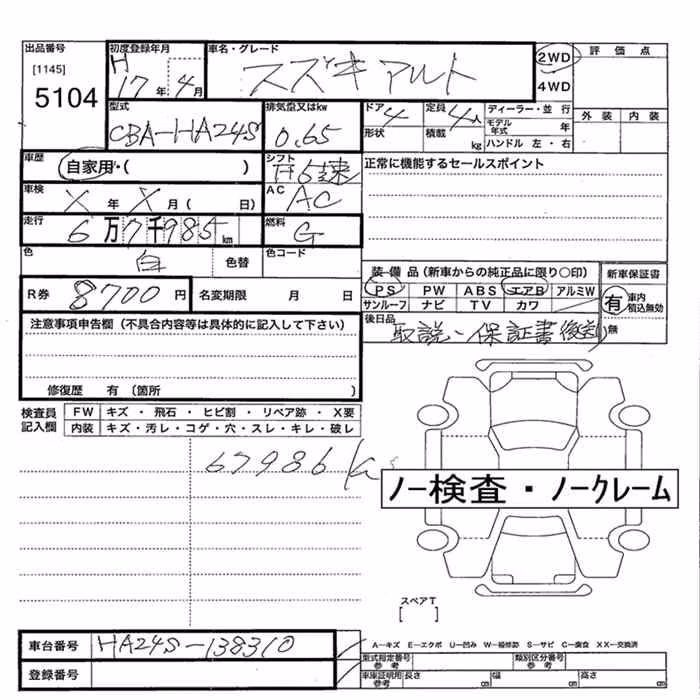 出品番号 初度登録年月 車名・グレード 評価点
[1145] H 17年 4月 スズキ アルト 2WD
5104 4WD
型式 排気量又はkw ドア 定員 ディーラー・並行 外装 内装
CBA-HA24S 0.65 4 4人 モデル年式 年
形状 積載 kg ハンドル 左・右
車歴 自家用・( ) シフト 5速 正常に機能するセールスポイント
車検 X年 X月( 日) AC AC
走行 6万7千985km 燃料 G
色 白 色替 色コード
装備品(新車からの純正品に限り○印) 新車保証書
R券 8700円 名変期限 月 日 PS PW ABS エアB アルミW 有 車内積込無効
サンルーフ ナビ TV カワ 無
注意事項申告欄(不具合内容等は具体的に記入して下さい) 後日品 取説、保証書
修復歴 有(箇所 )
検査員記入欄 FW キズ・飛石・ヒビ割・リペア跡・X要
内装 キズ・汚レ・コゲ・穴・スレ・キレ・破レ
67986
ノー検査・ノークレーム
スペアT
[ ]
車台番号 HA24S-138310 A-キズ E-エクボ U-凹ミ W-補修跡 S-サビ C-腐食 XX-交換済
登録番号 型式指定番号 参考 類別区分番号 参考
車庫証明用 参考 長さ cm 幅 cm 高さ cm